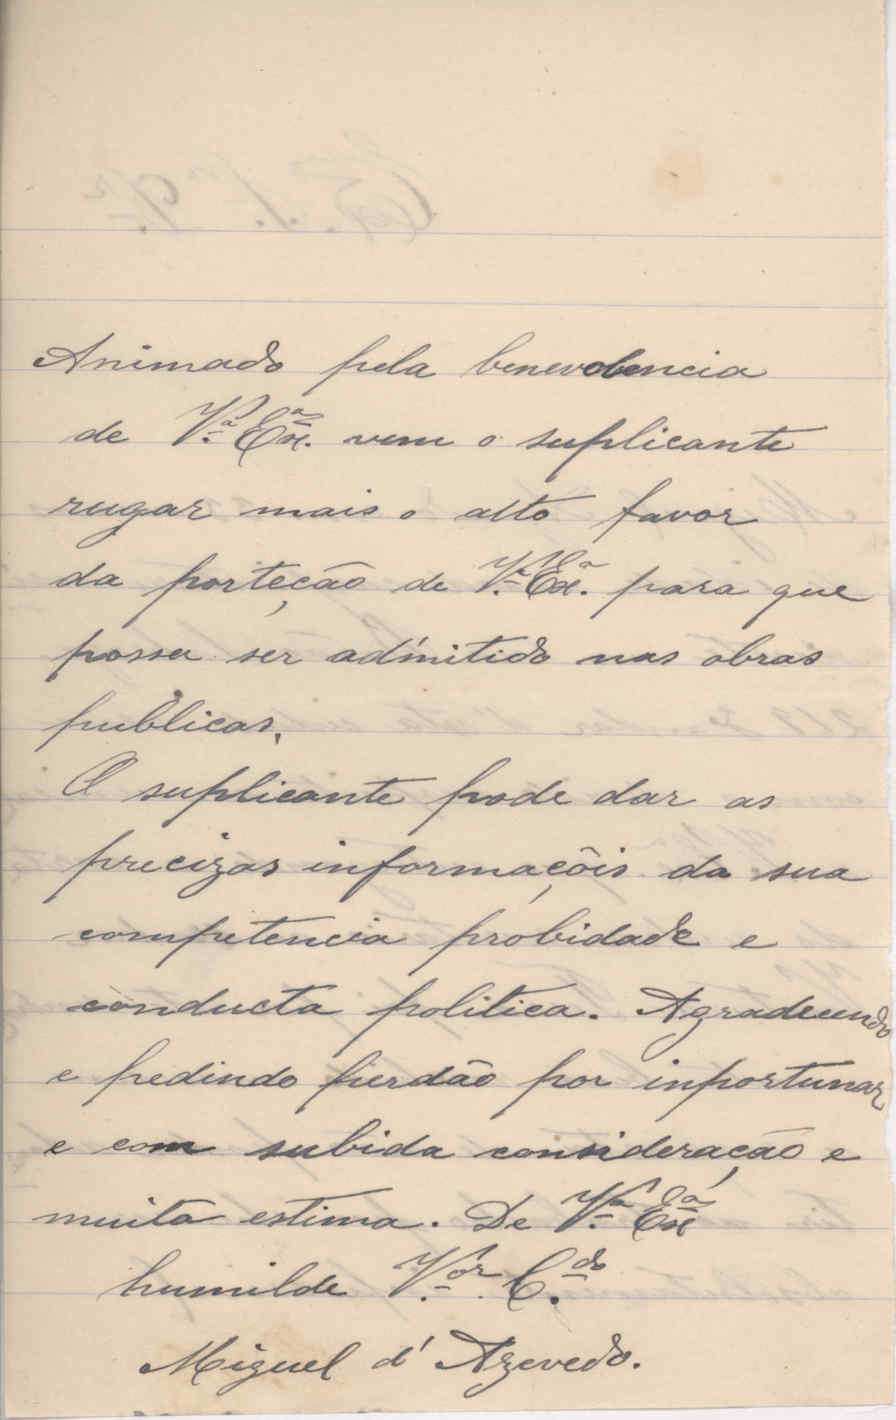 Animado pela benevolencia
de V.ª Ex.ª vem o suplicante
rugar mais o alto favor
da porteção de V.ª Ex.ª para que
possa ser admitido nas obras
publicas.
O suplicante pode dar as
precizas informaçõis da sua
competencia probidade e
conducta politica. Agradecendo
e pedindo perdão por inportunar
e com subida consideração e
muita estima. De V.ª Ex.ª
humilde V.ºr C.do
Miguel d'Azevedo.